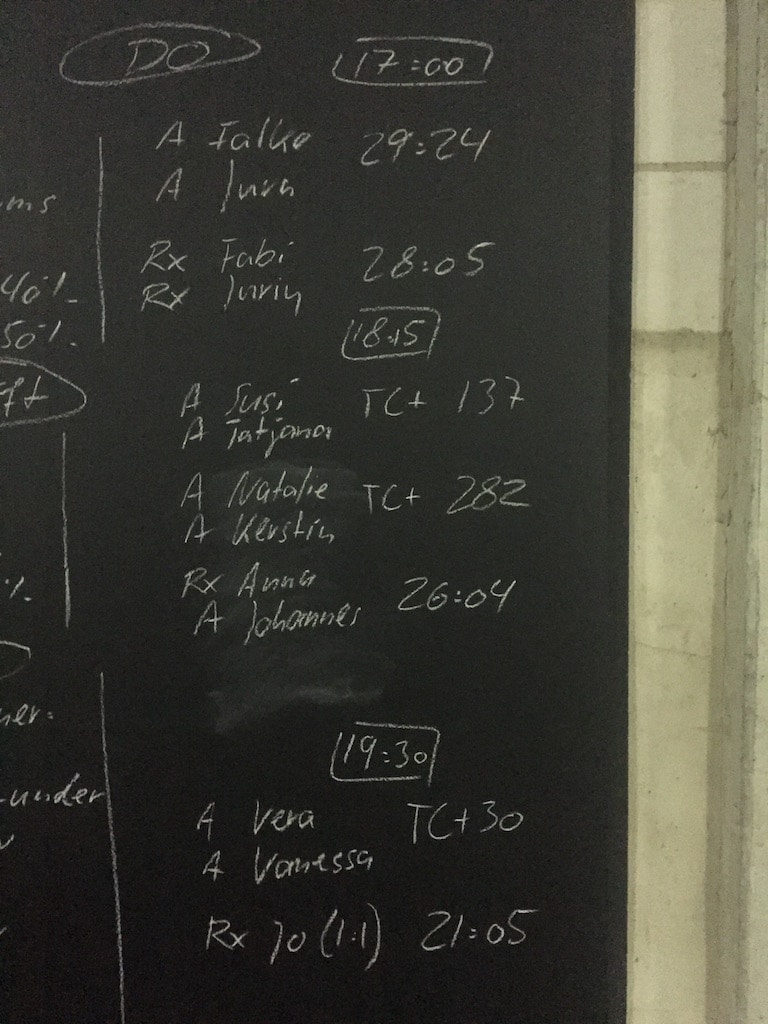 DO 17:00
A Falko 29:24
A
Rx Fabi 28:05
Rx
18:15
A Susi TC+ 137
A Tatjana
A Natalie TC+ 282
A Kerstin
Rx Anna 26:04
A Johannes
19:30
A Vera TC+30
A Vanessa
Rx Jo (1:1) 21:05
ms
40%
50%
ft
%
ner.
-under